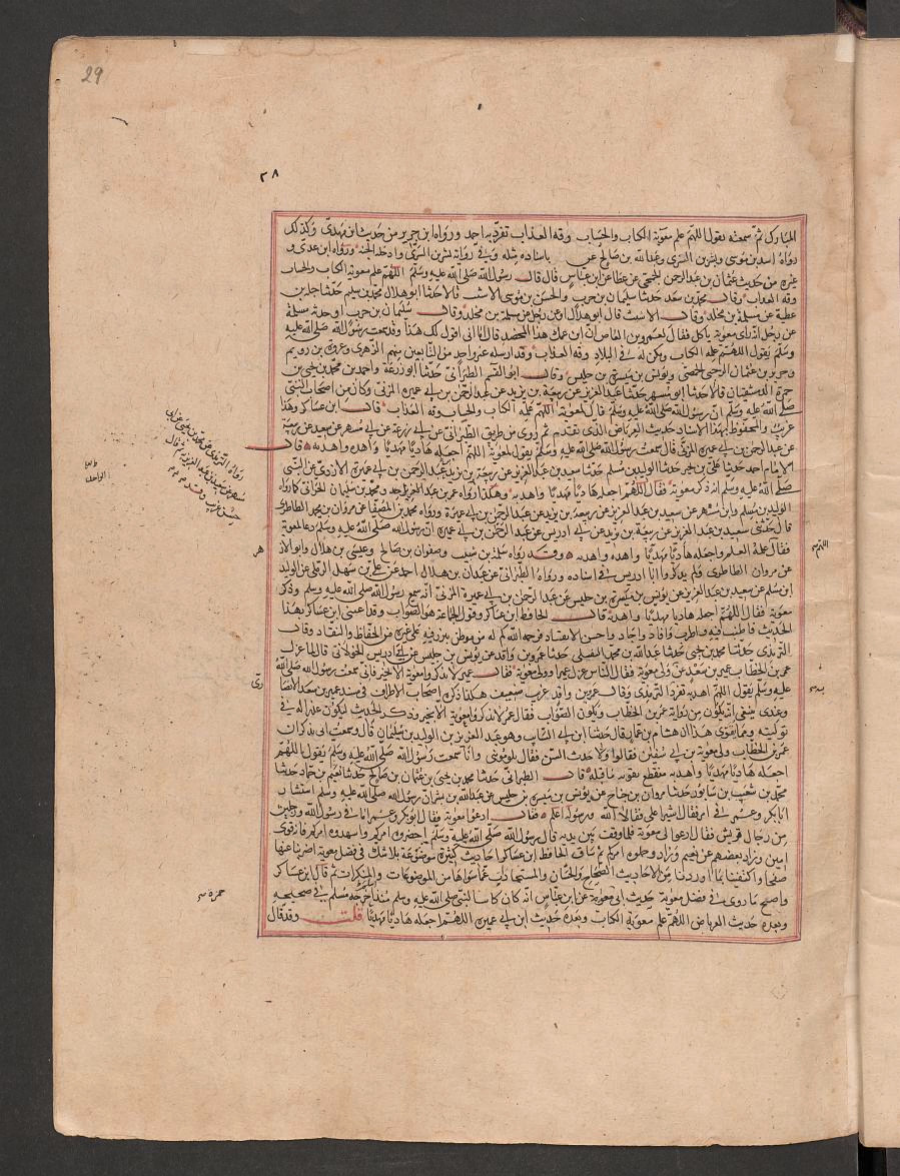 29
٢٨
المبارك ثم سمعته يقول اللهم علم معوية الكتاب والحساب وقه العذاب تفرد به احمد ورواه ابن جرير من حديث ابن مهدي وكذلك
رواه اسد بن موسى وبشر بن السري وعبد الله بن صالح عن باسناده مثله وفي رواية بشر بن السري وادخله الجنة ورواه ابن عدي و
غيره من حديث عثمان بن عبد الرحمن الجمحي عن عطا عن ابن عباس قال قال رسول الله صلى الله عليه وسلم اللهم علم معوية الكتاب والحساب
وقه العذاب وقال محمد بن سعد حدثنا سليمان بن حرب والحسن بن موسى الاشيب قالا حدثنا ابو هلال محمد بن سليم حدثنا جبلة بن
عطية عن مسلمة بن مخلد وقال الاشيب قال ابو هلال او عن رجل عن مسلمة بن مخلد وقال سليمان بن حرب او حدثه مسلمة
عن رجل انه راى معوية ياكل فقال لعمرو بن العاص ان ابن عمك هذا لمخضد قال اما اني اقول لك هذا وقد سمعت رسول الله صلى الله عليه
وسلم يقول اللهم علمه الكتاب ومكن له في البلاد وقه العذاب وقد ارسله غير واحد من التابعين منهم الزهري وعروة بن رويم
وحريز بن عثمان الرحبي الحمصي ويونس بن ميسرة بن حلبس وقال ابو القسم الطبراني حدثنا ابو زرعة واحمد بن محمد بن يحيى بن
حمزة الدمشقيان قالا حدثنا ابو مسهر حدثنا سعيد بن عبد العزيز عن ربيعة بن يزيد عن عبد الرحمن بن ابي عميرة المزني وكان من اصحاب النبي
صلى الله عليه وسلم ان رسول الله صلى الله عليه وسلم قال لمعوية اللهم علمه الكتاب والحساب وقه العذاب قال ابن عساكر وهذا
غريب والمحفوظ بهذا الاسناد حديث العرباض الذي تقدم ثم روى من طريق الطبراني عن ابي زرعة عن ابي مسهر عن سعيد عن ربيعة
عن عبد الرحمن بن ابي عميرة المزني قال سمعت رسول الله صلى الله عليه وسلم يقول لمعوية اللهم اجعله هاديا مهديا واهده واهد به قال
الامام احمد حدثنا علي بن بحر حدثنا الوليد بن مسلم حدثنا سعيد بن عبد العزيز عن ربيعة بن يزيد عن عبد الرحمن بن ابي عميرة الازدي عن النبي
صلى الله عليه وسلم انه ذكر معوية فقال اللهم اجعله هاديا مهديا واهد به وهكذا رواه عمر بن عبد الواحد ومحمد بن سليمان الحراني كما رواه
الوليد بن مسلم وابو مسهر عن سعيد بن عبد العزيز عن ربيعة بن يزيد عن عبد الرحمن بن ابي عميرة ورواه محمد بن المصفى عن مروان بن محمد الطاطري
قال حدثني سعيد بن عبد العزيز عن ربيعة بن يزيد عن ابي ادريس عن عبد الرحمن بن ابي عميرة ان رسول الله صلى الله عليه وسلم دعا لمعوية
فقال علمه العلم واجعله هاديا مهديا واهده واهد به وقد رواه سلمة بن شبيب وصفوان بن صالح وعيسى بن هلال وابو الازهر
عن مروان الطاطري ولم يذكروا ابا ادريس في اسناده ورواه الطبراني عن عبدان بن احمد عن علي بن سهل الرملي عن الوليد
ابن مسلم عن سعيد بن عبد العزيز عن يونس بن ميسرة بن حلبس عن عبد الرحمن بن ابي عميرة المزني انه سمع رسول الله صلى الله عليه وسلم وذكر
معوية فقال اللهم اجعله هاديا مهديا واهد به قال الحافظ ابن عساكر وقول الجماعة هو الصواب وقد اعتنى ابن عساكر بهذا
الحديث فاطنب فيه واطيب وافاد واجاد واحسن الانتقاد فرحمه الله كم له من موطن يبرز فيه على غيره من الحفاظ والنقاد وقال
الترمذي حدثنا محمد بن يحيى حدثنا عبد الله بن محمد النفيلي حدثنا عمرو بن واقد عن يونس بن حلبس عن ابي ادريس الخولاني قال لما عزل
عمر بن الخطاب عمير بن سعيد عن ولى معوية فقال الناس عزل عميرا وولى معوية فقال عمير لا تذكروا معوية الا بخير فاني سمعت رسول الله صلى الله
عليه وسلم يقول اللهم اهد به تفرد به الترمذي وقال عمرو بن واقد غريب ضعيف هكذا ذكره اصحاب الاطراف في مسند عمير بن سعد الانصاري
وعندي ينبغي ان يكون من رواية عمر بن الخطاب ويكون الصواب فقال عمر لا تذكروا معوية الا بخير وذكر الحديث ليكون عذرا له في
توليته ومما يقوي هذا ان هشام بن عمار قال حدثنا ابن ابي السائب وهو عبد العزيز بن الوليد بن سليمان قال وسمعت ابي يذكر ان
عمر بن الخطاب ولى معوية بن ابي سفين فقالوا ولا حدث السن فقال تلوموني وانا سمعت رسول الله صلى الله عليه وسلم يقول اللهم
اجعله هاديا مهديا واهد به منقطع يقويه ما قبله قال الطبراني حدثنا محمد بن يحيى بن عثمان بن صالح حدثنا نعيم بن حماد حدثنا
محمد بن شعيب بن سابور حدثنا مروان بن جناح عن يونس بن ميسرة بن حلبس عن عبد الله بن بسر ان رسول الله صلى الله عليه وسلم استشار
ابا بكر وعمر في امر فقال اشيرا علي فقالا الله ورسوله اعلم فقال ادعوا معوية فقال ابو بكر وعمر اما في رسول الله ورجلين
من رجال قريش فقال ادعوا لي معوية فلما وقف بين يديه قال رسول الله صلى الله عليه وسلم احضروه امركم واشهدوه امركم فانه قوي
امين وزاد بعضهم عن نعيم وزاد وحملوه امركم ثم ساق الحافظ ابن عساكر احاديث كثيرة موضوعة بلا شك في فضل معوية اضربنا عنها
صفحا واكتفينا بما اوردنا من الاحاديث الصحاح والحسان والمستجادات عما سواها من الموضوعات والمنكرات ثم قال ابن عساكر
واصح ما روي في فضل معوية حديث ابي حمزة عن ابن عباس انه كان كاتب النبي صلى الله عليه وسلم منذ اسلم اخرجه مسلم في صحيحه
وبعده حديث العرباض اللهم علم معوية الكتاب وبعده حديث ابن ابي عميرة اللهم اجعله هاديا مهديا قلت وقد قال
رواه الترمذي عن محمد بن يحيى عن ابي
مسهر عن سعيد بن عبد العزيز به ثم قال
حسن غريب
اللهم
هر
ري
به
حمزة